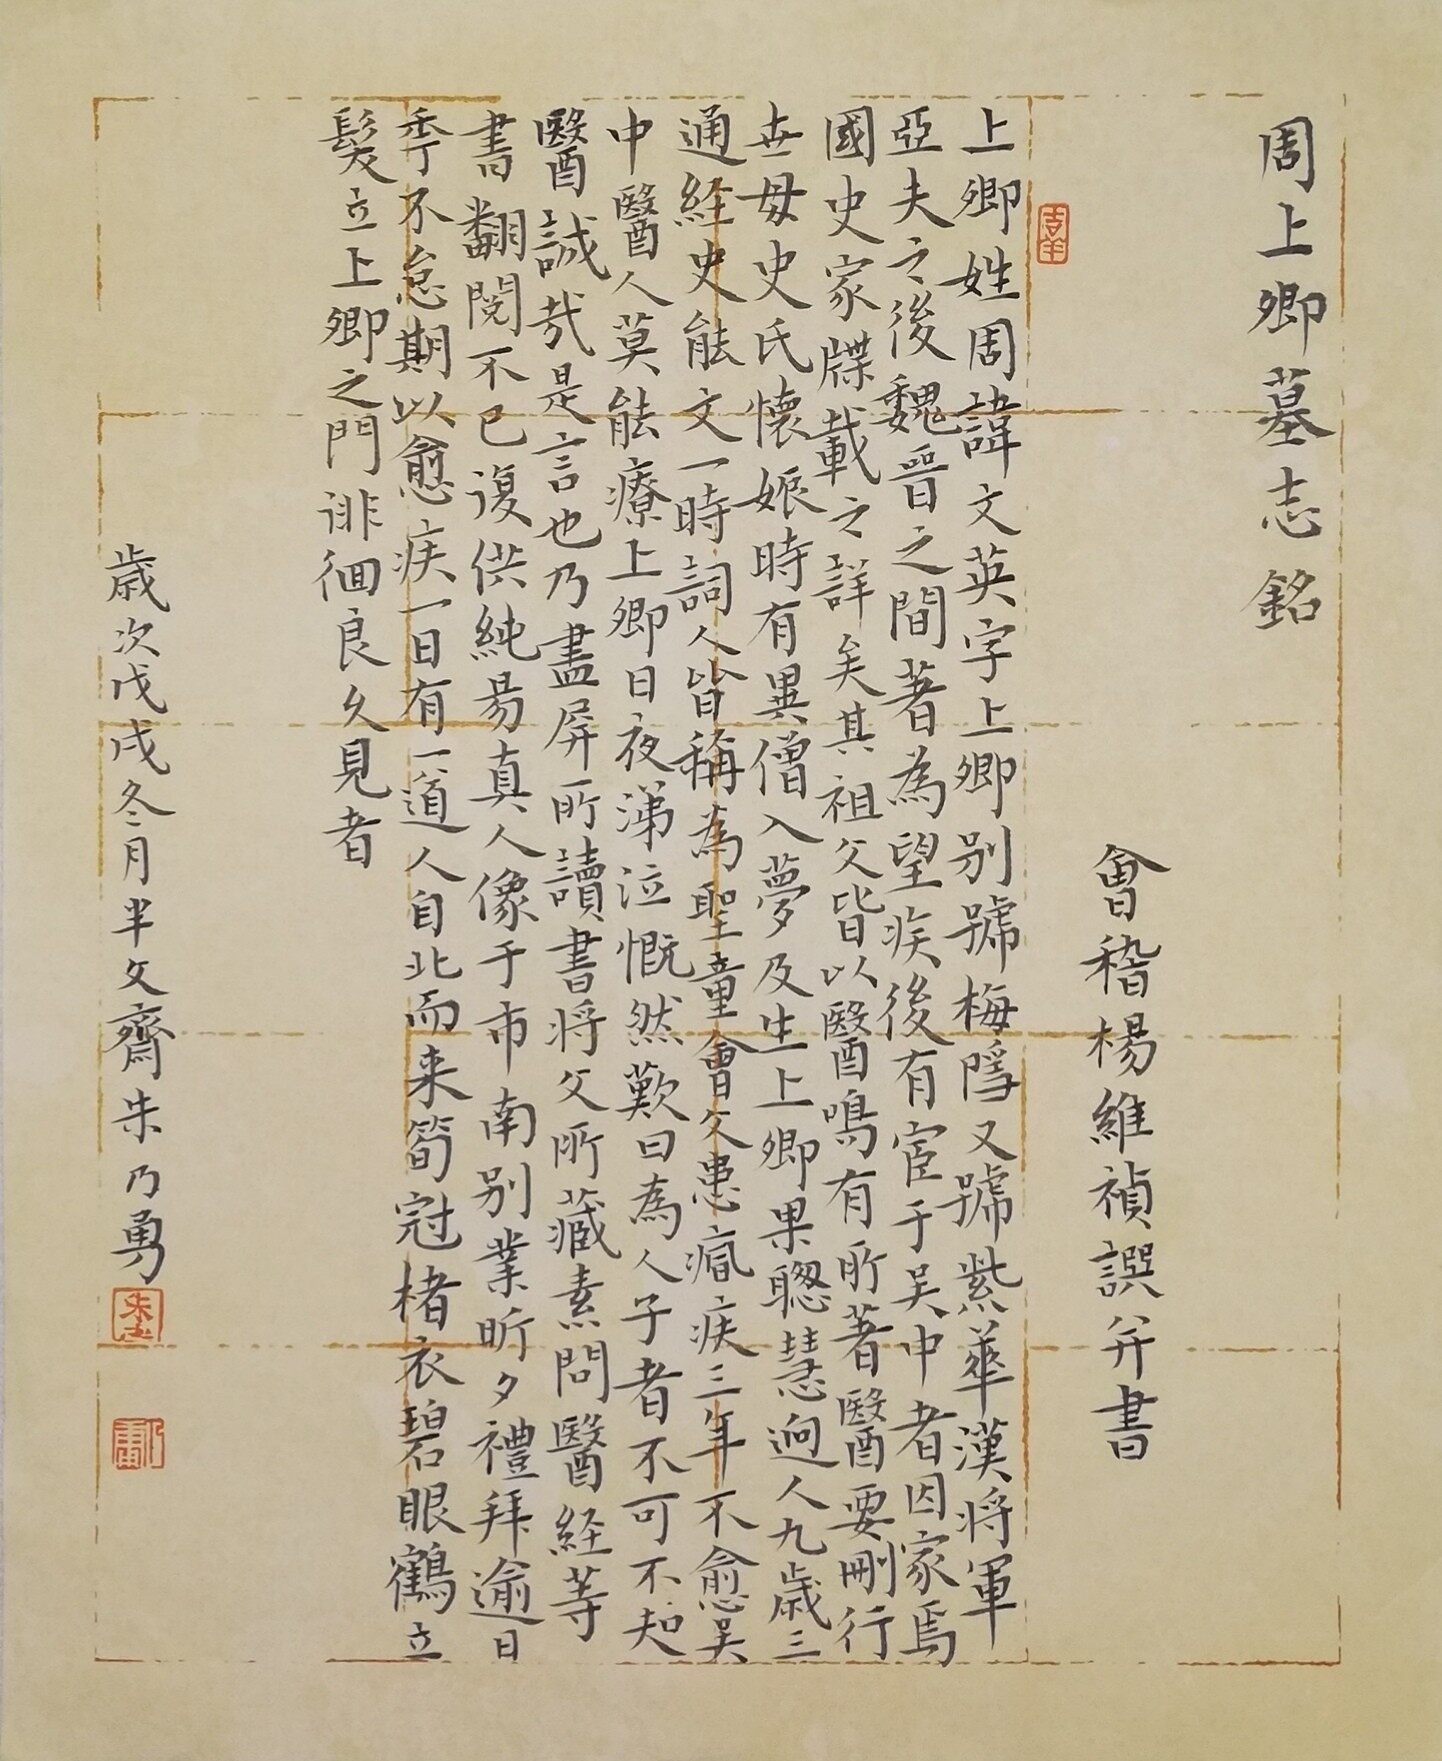 周上卿墓志銘
會稽楊維禎譔并書
上卿姓周諱文英字上卿别號梅隱又號紫華漢将軍
亞夫之後魏晉之間著為望疾後有宦于吴中者因家焉
國史家牒載之詳矣其祖父皆以醫鳴有所著醫要刪行
世母史氏懷娠時有異僧入夢及生上卿果聰慧迥人九歲三
通経史能文一時詞人皆稱為聖童會父患瘋疾三年不愈吴
中醫人莫能療上卿日夜涕泣慨然歎曰為人子者不可不知
醫誠哉是言也乃盡屏所讀書将父所藏素問醫経等
書翻閱不已復供純昜真人像于市南别業昕夕禮拜逾日
季不怠期以愈疾一日有一道人自北而来筍冠楮衣碧眼鶴立
髮立上卿之門徘徊良久見者
歲次戊戌冬月半文齋朱乃勇